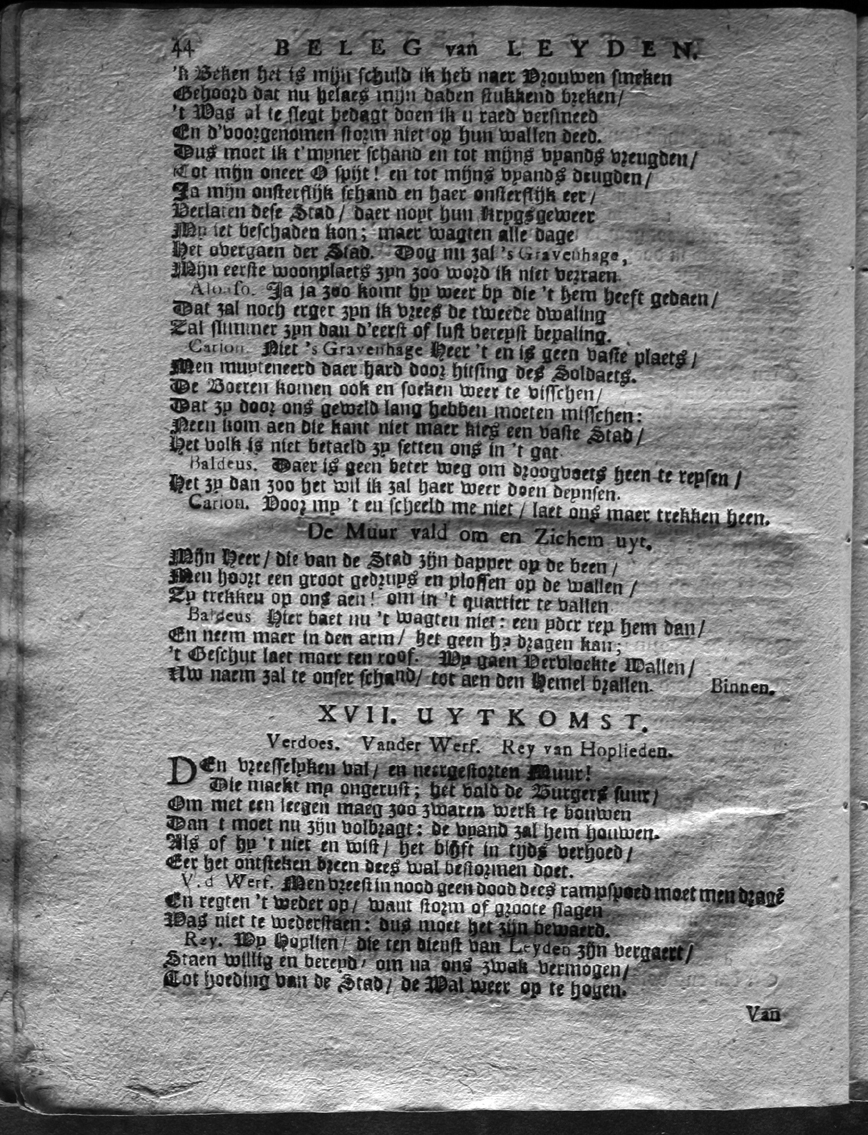 44 BELEG van LEYDEN.
'k Beken het is mijn schuld ik heb naer Vrouwen smeken
Gehoord dat nu helaes mijn daden stukkend breken/
't Was al te slegt bedagt doen ik u raed versmeed
En d'voorgenomen storm niet op hun wallen deed.
Dus moet ik t'myner schand en tot mijns vyands vreugden/
Tot mijn oneer O spijt! en tot mijns vyands deugden/
Ja mijn onsterflijk schand en haer onsterflijk eer/
Verlaten dese Stad/ daer nopt hun Krygsgeweer
My iet beschaden kon; maer wagten alle dage
Het overgaen der Stad. Dog nu zal 's Gravenhage,
Mijn eerste woonplaets zyn zoo word ik niet verraen.
Alonso. Ja ja zoo komt hy weer by die 't hem heeft gedaen/
Dat zal noch erger zyn ik vrees de tweede dwaling
Zal slimmer zyn dan d'eerst of lust vereyst bepaling.
Carion. Niet 's Gravenhage Heer 't en is geen vaste plaets/
Men muyteneerd daer hard door hitsing des Soldaets.
De Boeren komen ook en soeken weer te visschen/
Dat zy door ons geweld lang hebben moeten misschen:
Neen kom aen die kant niet maer kies een vaste Stad/
Het volk is niet betaeld zy setten ons in 't gat
Baldeus. Daer is geen beter weg om droogvoets heen te reysen/
Het zy dan zoo het wil ik zal haer weer doen deynsen.
Carion. Voor my 't en scheeld me niet/ laet ons maer trekken heen.
De Muur vald om en Zichem uyt.
Mijn Heer/ die van de Stad zijn dapper op de been/
Men hoort een groot gedruys en ploffen op de wallen/
Zy trekken op ons aen! om in 't quartier te vallen
Baldeus Hier baet nu 't wagten niet: een yder rep hem dan/
En neem maer in den arm/ het geen hy dragen kan;
't Geschut laet maer ten roof. Wy gaen Vervloekte Wallen/
Uw naem zal te onser schand/ tot aen den Hemel brallen. Binnen.
XVII. UYTKOMST.
Verdoes. Vander Werf. Rey van Hoplieden.
DEn vreesselyken val/ en neergestorten Muur!
Die maekt my ongerust; het vald de Burgers suur/
Om met een leegen maeg zoo zwaren werk te bouwen
Dan 't moet nu zijn volbragt: de vyand zal hem houwen.
Als of hy 't niet en wist/ het blijft in tyds verhoed/
Eer het ontsteken breen dees wal bestormen doet.
V. d Werf. Men vreest in nood geen dood dees rampspoed moet men dragē
En regten 't weder op/ want storm of groote slagen
Was niet te wederstaen: dus moet het zijn bewaerd.
Rey. Wy Hoplien/ die ten dienst van Leyden zijn vergaert/
Staen willig en bereyd/ om na ons zwak vermogen/
Tot hoeding van de Stad/ de Wal weer op te hogen.
Van